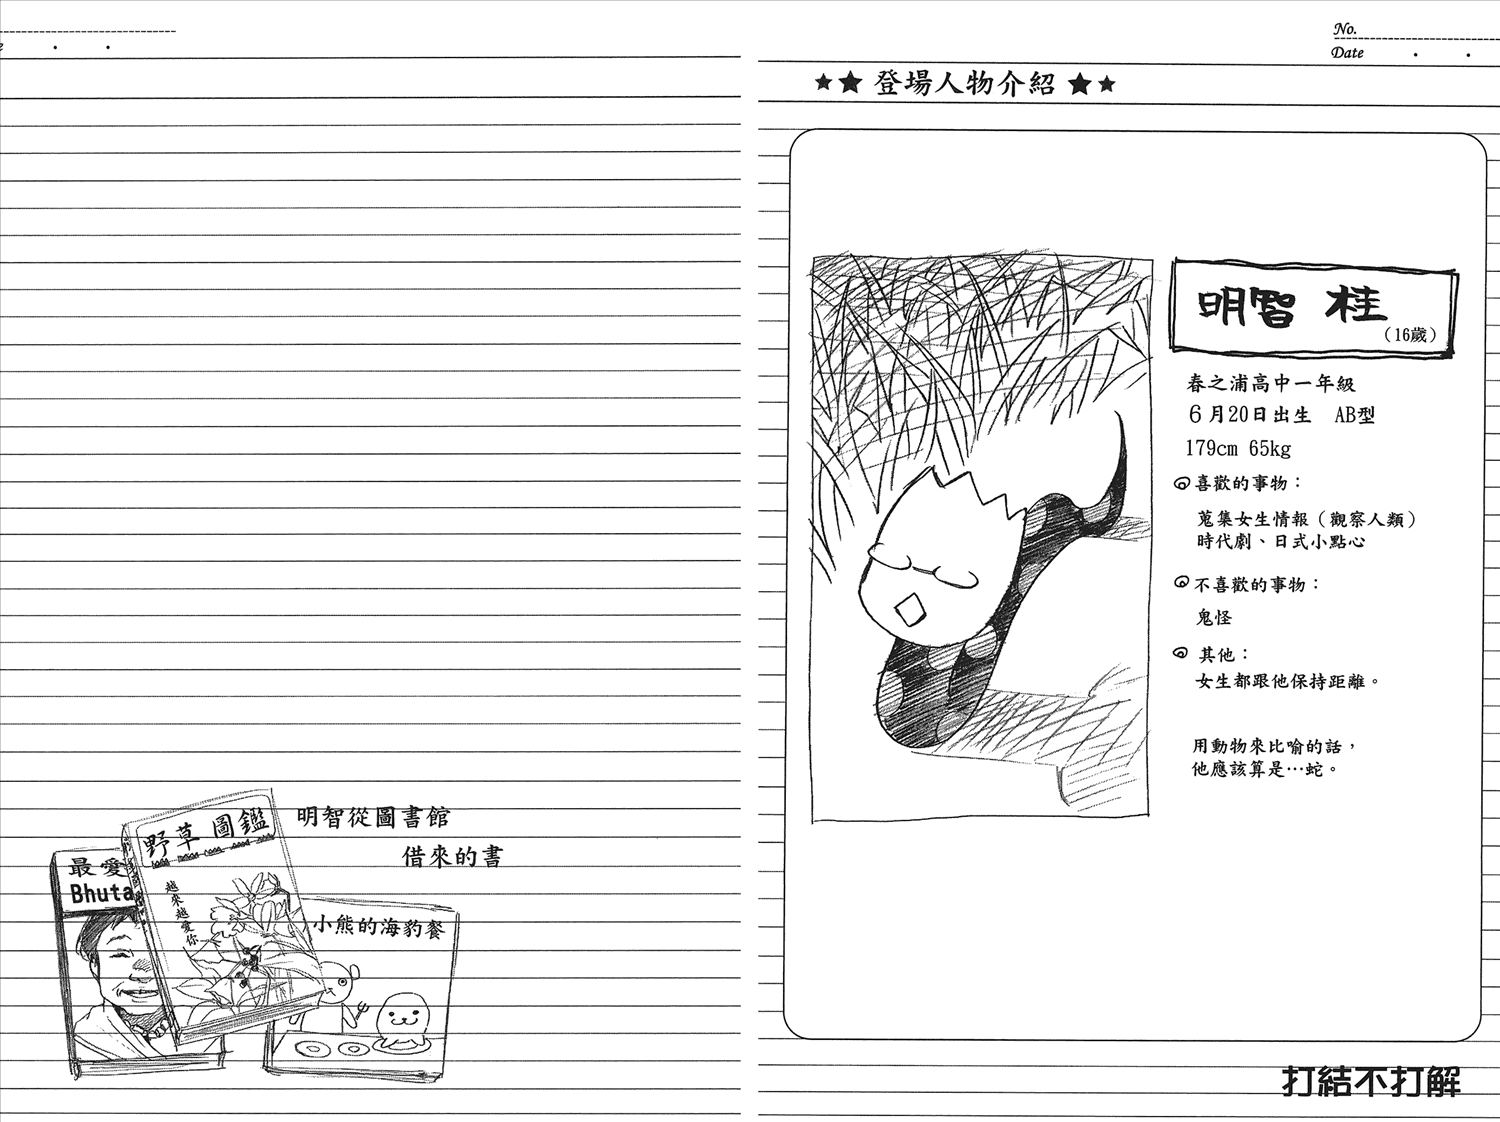 e
No.
Date
★★登場人物介紹★★
明智 桂
(16歲)
春之浦高中一年級
6月20日出生 AB型
179cm 65kg
喜歡的事物：
蒐集女生情報（觀察人類）
時代劇、日式小點心
不喜歡的事物：
鬼怪
其他：
女生都跟他保持距離。
用動物來比喻的話，
他應該算是…蛇。
明智從圖書館
借來的書
野草圖鑑
越來越愛你
最愛
Bhuta
小熊的海豹餐
打結不打解